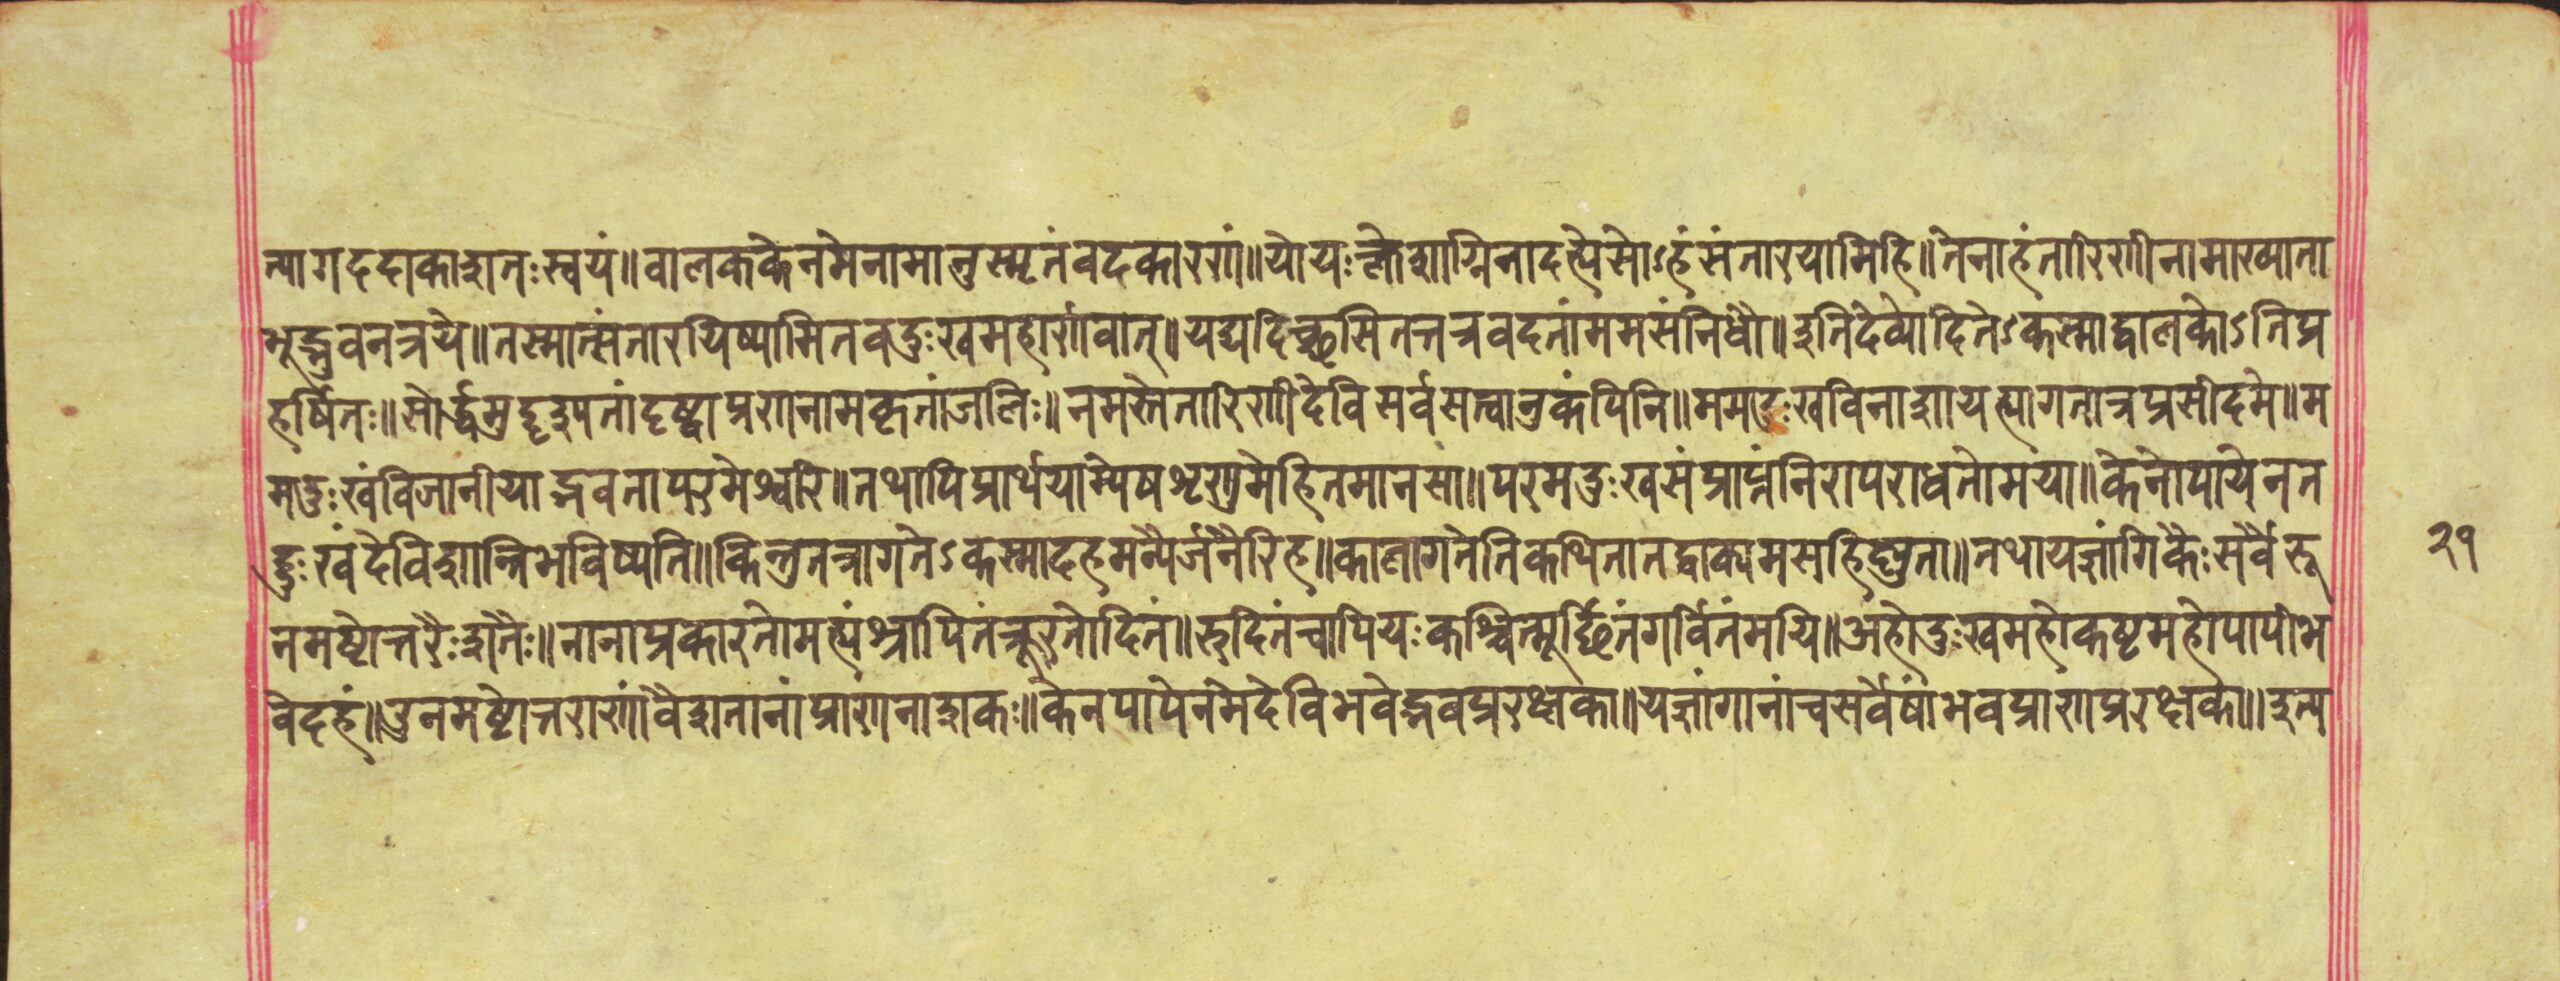 त्यागददाकाशतःस्वयं॥वालककेनमेनामानुस्मृतंवदकारणं॥योयःक्लेशाग्निनादह्येसोऽहंसंतारयामिहि॥तेनाहंतारिणीनामाख्याता
भूद्भुवनत्रये॥तस्मात्संतारयिष्यामितवदुःखमहार्णवात्॥यद्यदिच्छसितत्तत्रवदतांममसंनिधौ॥इतिदेव्योदितेऽकस्माद्वालकोऽतिप्र
हर्षितः॥सोर्द्धमुद्दृइपतांदृष्ट्वाप्रणनामकृतांजलिः॥नमस्तेतारिणीदेविसर्वसत्वानुकंपिनि॥ममदुःखविनाशायत्यागतात्रप्रसीदमे॥म
मदुःखंविजानीयाद्भवतापरमेश्वरि॥तथापिप्रार्थयाम्पेषशृणुमेहितमानसा॥परमदुःखसंप्राप्तंनिरापराधतोमया॥केनोपायेनत
द्दुःखंदेविशान्तिभविष्यति॥किन्तुतत्रागतेऽकस्मादहमन्यैर्जनैरिह॥कालागतेतिकथितातद्वाक्यमसहिष्णुता॥तथायज्ञांगिकैःसर्वैरू
नमष्टोत्तरैःशतैः॥नानाप्रकारतोमत्यंश्रापितंक्रूरतोदितं॥रुदितंचापियःकश्चिन्मूर्छितंगर्वितंमयि॥अहोदुःखमहोकष्टमहोपापीभ
वेदहं॥उनमष्टोत्तराणांवैशतानांप्राणनाशकः॥केनपापेनमेदेविभवेद्भवप्ररक्षका॥यज्ञांगानांचसर्वेषांभवप्राणप्ररक्षका॥इत्य
२१